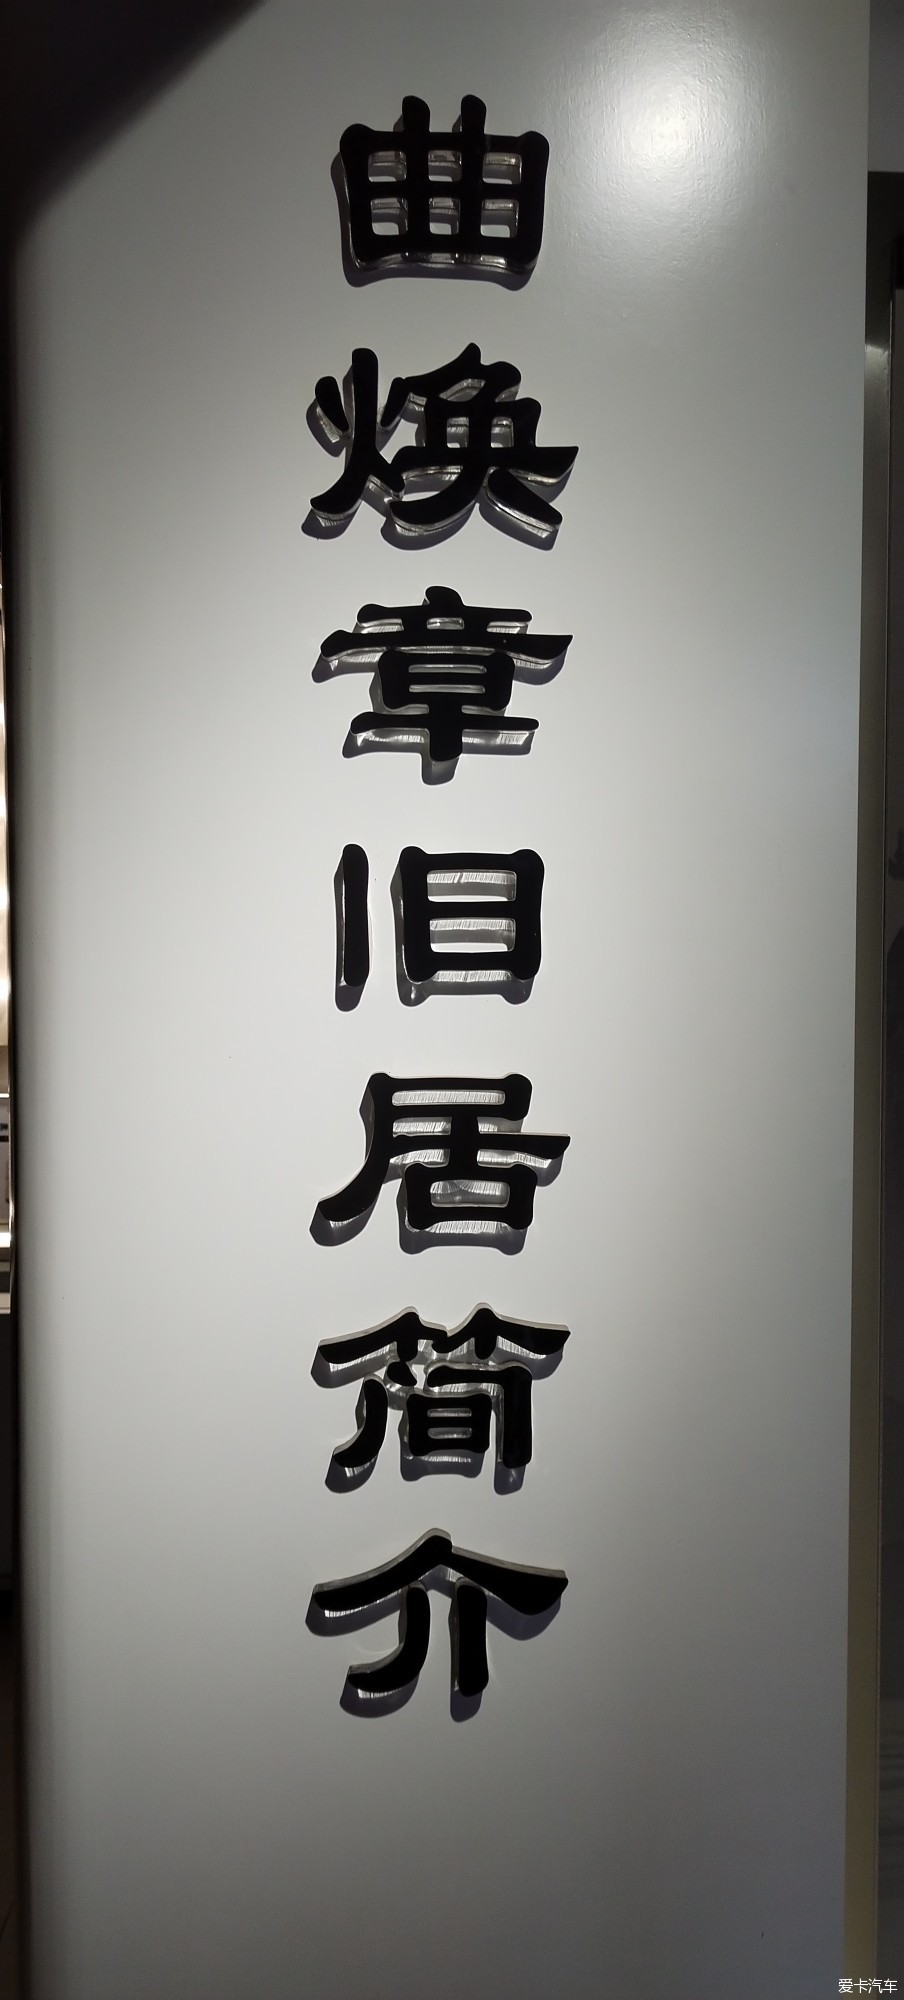 曲焕章旧居简介
爱卡汽车